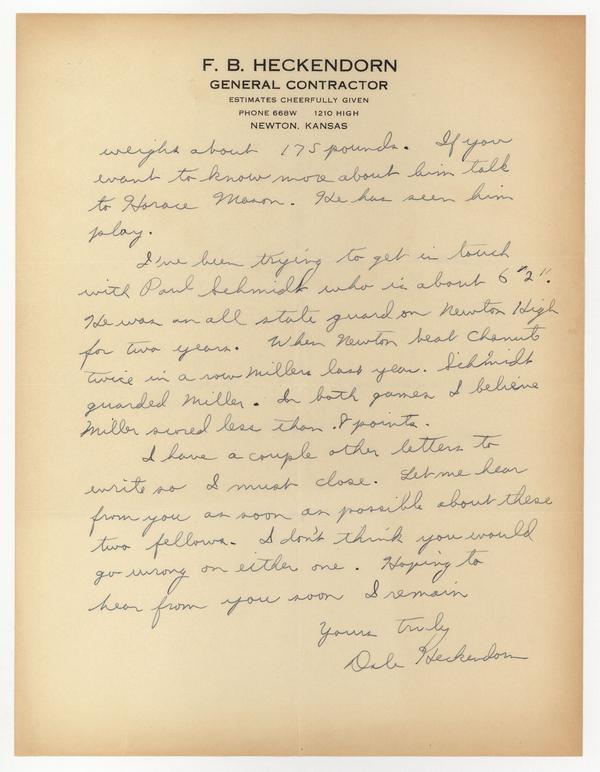 F. B. HECKENDORN
GENERAL CONTRACTOR
ESTIMATES CHEERFULLY GIVEN
PHONE 668W 1210 HIGH
NEWTON, KANSAS
weighs about 175 pounds. If you
want to know more about him talk
to Horace Mason. He has seen him
play.
I've been trying to get in touch
with Paul Schmidt who is about 6"2".
He was an all state guard on Newton High
for two years. When Newton beat Chanute
twice in a row Millers last year. Schmidt
guarded Miller. In both games I believe
Miller scored less than 8 points.
I have a couple other letters to
write so I must close. Let me hear
from you as soon as possible about these
two fellows. I don't think you would
go wrong on either one. Hoping to
hear from you soon I remain
Yours truly
Dale Heckendorn